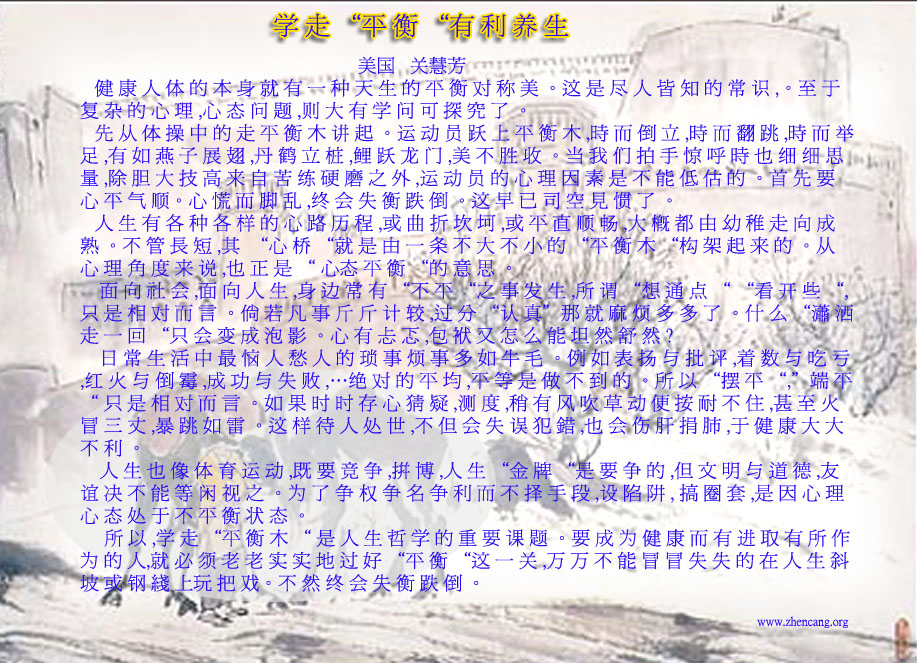 学走“平衡“有利养生
美国 关慧芳
健康人体的本身就有一种天生的平衡对称美。这是尽人皆知的常识,。至于
复杂的心理,心态问题,则大有学问可探究了。
先从体操中的走平衡木讲起。运动员跃上平衡木,時而倒立,時而翻跳,時而举
足,有如燕子展翅,丹鹤立桩,鲤跃龙门,美不胜收。当我们拍手惊呼時也细细思
量,除胆大技高来自苦练硬磨之外,运动员的心理因素是不能低估的。首先要
心平气顺。心慌而脚乱,终会失衡跌倒。这早已司空見惯了。
人生有各种各样的心路历程,或曲折坎坷,或平直顺畅,大概都由幼稚走向成
熟。不管長短,其“心桥“就是由一条不大不小的“平衡木“构架起来的。从
心理角度来说,也正是“心态平衡“的意思。
面向社会,面向人生,身边常有“不平“之事发生,所谓“想通点““看开些“,
只是相对而言。倘若凡事斤斤计较,过分“认真”那就麻烦多多了。什么“瀟洒
走一回“只会变成泡影。心有忐忑,包袱又怎么能坦然舒然?
日常生活中最恼人愁人的琐事烦事多如牛毛。例如表扬与批评,着数与吃亏
,红火与倒霉,成功与失败,…绝对的平均,平等是做不到的。所以“摆平“,”端平
“只是相对而言。如果时时存心猜疑,测度,稍有风吹草动便按耐不住,甚至火
冒三丈,暴跳如雷。这样待人处世,不但会失误犯錯,也会伤肝捐肺,于健康大大
不利。
人生也像体育运动,既要竞争,拚博,人生“金牌“是要争的,但文明与道德,友
谊决不能等闲视之。为了争权争名争利而不择手段,设陷阱,搞圈套,是因心理
心态处于不平衡状态。
所以,学走“平衡木“是人生哲学的重要课题。要成为健康而有进取有所作
为的人,就必须老老实实地过好“平衡“这一关,万万不能冒冒失失的在人生斜
坡或钢綫上玩把戏。不然终会失衡跌倒。
www.zhencang.org